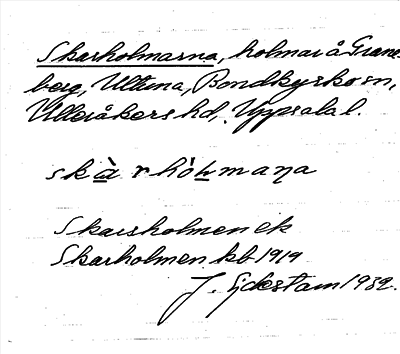 Skarholmarna, holmar å Grane-
berg, Ultuna, Bondkyrko sn,
Ulleråkers hd, Uppsala l.
skà̱rhòḻmaṉa
Skarsholmen ek
Skarholmen kb 1919
J. Ejdestam 1932.